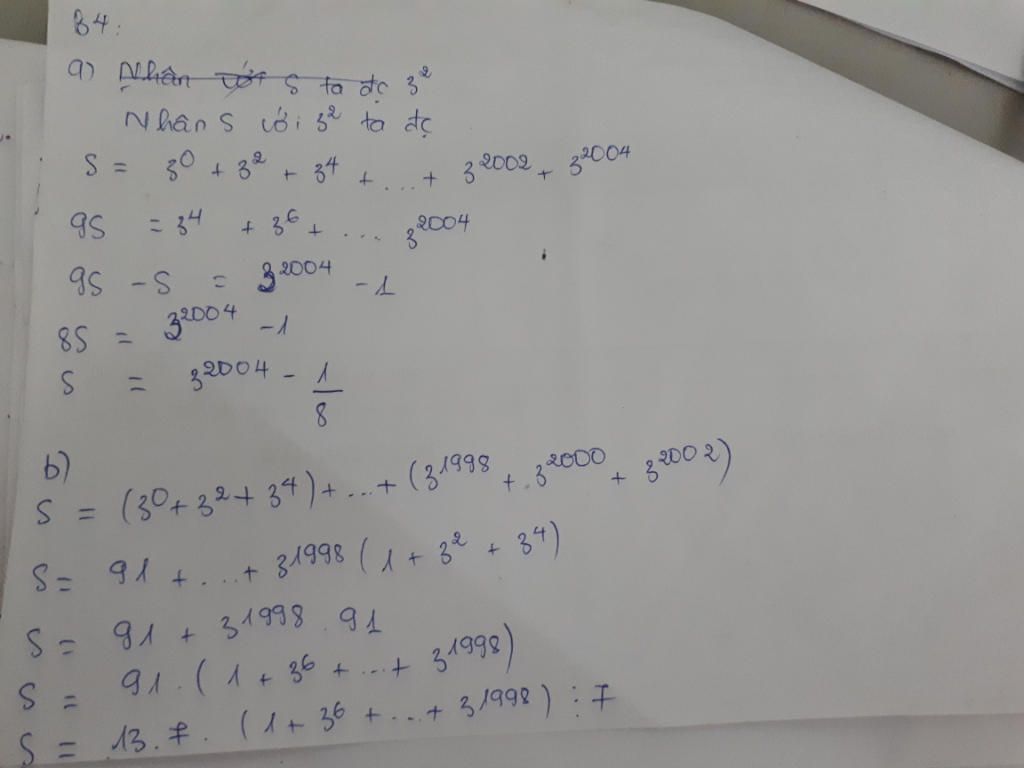 B4:
a) Nhân với S ta đc 3²
Nhân S với 3² ta đc
S = 3⁰ + 3² + 3⁴ + ... + 3²⁰⁰² + 3²⁰⁰⁴
9S = 3⁴ + 3⁶ + ... 3²⁰⁰⁴
9S - S = 3²⁰⁰⁴ - 1
8S = 3²⁰⁰⁴ - 1
S = 3²⁰⁰⁴ - 1/8
b)
S = (3⁰ + 3² + 3⁴) + ... + (3¹⁹⁹⁸ + 3²⁰⁰⁰ + 3²⁰⁰²)
S = 91 + ... + 3¹⁹⁹⁸ (1 + 3² + 3⁴)
S = 91 + 3¹⁹⁹⁸ . 91
S = 91 . (1 + 3⁶ + ... + 3¹⁹⁹⁸)
S = 13 . 7 . (1 + 3⁶ + ... + 3¹⁹⁹⁸) ⋮ 7